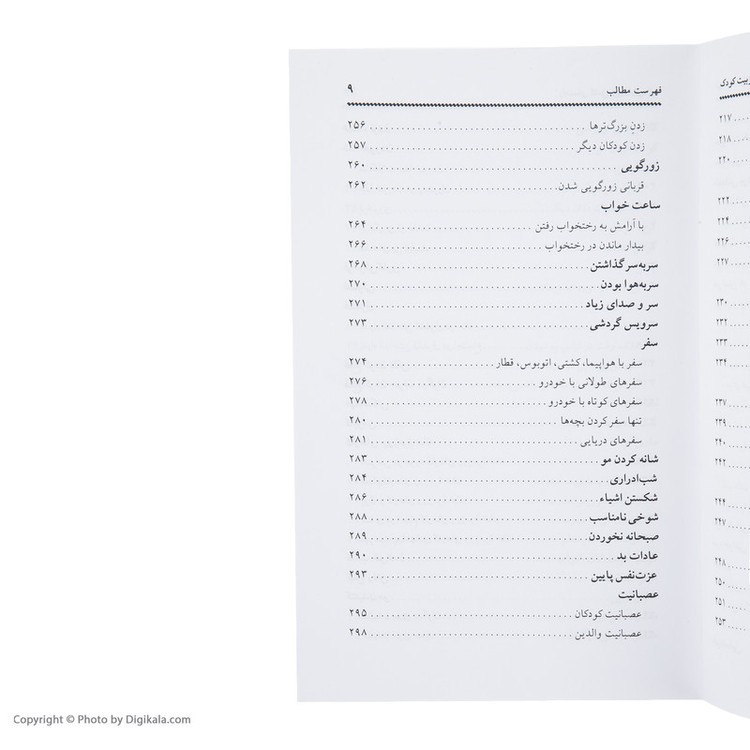 فهرست مطالب ۹
زدنِ بزرگ‌ترها ۲۵۶
زدن کودکان دیگر ۲۵۷
زورگویی ۲۶۰
قربانی زورگویی شدن ۲۶۲
ساعت خواب
با آرامش به رختخواب رفتن ۲۶۴
بیدار ماندن در رختخواب ۲۶۶
سربه‌سر گذاشتن ۲۶۸
سربه‌هوا بودن ۲۷۰
سر و صدای زیاد ۲۷۱
سرویس گردشی ۲۷۳
سفر
سفر با هواپیما، کشتی، اتوبوس، قطار ۲۷۴
سفرهای طولانی با خودرو ۲۷۶
سفرهای کوتاه با خودرو ۲۷۸
تنها سفر کردن بچه‌ها ۲۸۰
سفرهای دریایی ۲۸۱
شانه کردن مو ۲۸۳
شب‌ادراری ۲۸۴
شکستن اشیاء ۲۸۶
شوخی نامناسب ۲۸۸
صبحانه نخوردن ۲۸۹
عادات بد ۲۹۰
عزت‌نفس پایین ۲۹۳
عصبانیت
عصبانیت کودکان ۲۹۵
عصبانیت والدین ۲۹۸
کودکی
۲۱۷
۲۱۸
۲۲۰
۲۲۲
۲۲۴
۲۲۶
۲۲۷
۲۳۰
۲۳۲
۲۳۳
۲۳۴
۲۳۷
۲۳۹
۲۴۰
۲۴۲
۲۴۴
۲۴۷
۲۴۸
۲۵۰
۲۵۱
۲۵۳
Copyright © Photo by Digikala.com